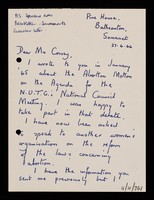 Pine House.
Batheaston,
Somerset
Dear Mr Conroy,
I wrote to you in January
65 about the Abortion Motion
on the Agenda for the
N.U.T.G.'s National Council
Meeting. I was happy to
take part in that debate.
I have now been asked
to speak to another women's
organisation on the reform
of the laws concerning
abortion.
I have the information you
sent me previously but I